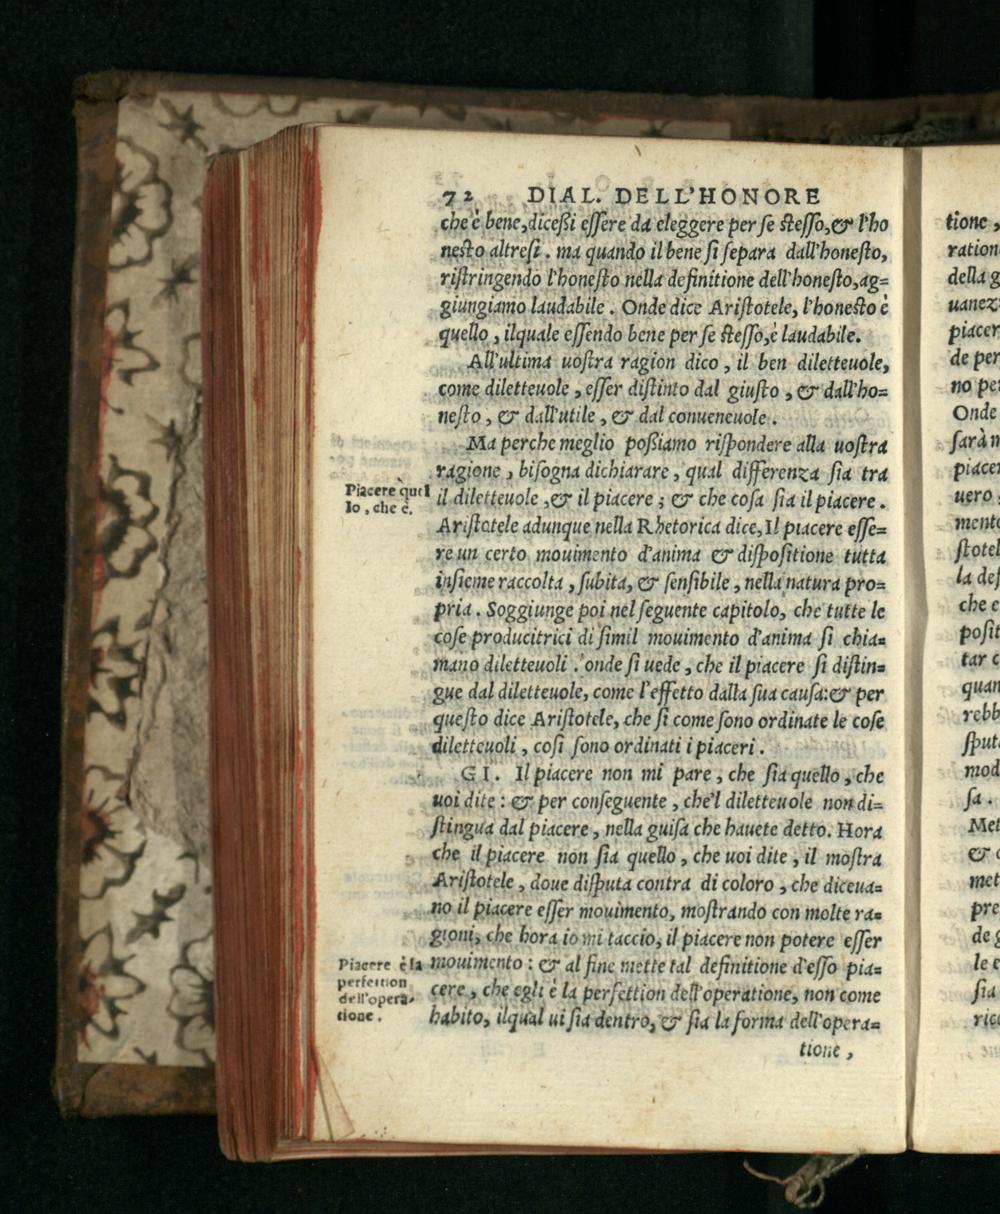 72 DIAL. DELL'HONORE
che è bene, diceßi eſſere da eleggere per ſe ſteſſo, & l'ho
neſto altreſi. ma quando il bene ſi ſepara dall'honeſto,
riſtringendo l'honeſto nella definitione dell'honeſto, ag=
giungiamo laudabile. Onde dice Ariſtotele, l'honeſto è
quello, ilquale eſſendo bene per ſe ſteſſo, è laudabile.
All'ultima uoſtra ragion dico, il ben diletteuole,
come diletteuole, eſſer diſtinto dal giuſto, & dall'ho=
neſto, & dall'utile, & dal conueneuole.
Ma perche meglio poßiamo riſpondere alla uoſtra
ragione, biſogna dichiarare, qual differenza ſia tra
Piacere quel
lo, che è.
il diletteuole, & il piacere; & che coſa ſia il piacere.
Ariſtotele adunque nella Rhetorica dice, Il piacere eſſe=
re un certo mouimento d'anima & diſpoſitione tutta
inſieme raccolta, ſubita, & ſenſibile, nella natura pro=
pria. Soggiunge poi nel ſeguente capitolo, che tutte le
coſe producitrici di ſimil mouimento d'anima ſi chia=
mano diletteuoli. onde ſi uede, che il piacere ſi diſtin=
gue dal diletteuole, come l'effetto dalla ſua cauſa: & per
queſto dice Ariſtotele, che ſi come ſono ordinate le coſe
diletteuoli, coſi ſono ordinati i piaceri.
GI. Il piacere non mi pare, che ſia quello, che
uoi dite: & per conſeguente, che'l diletteuole non di=
ſtingua dal piacere, nella guiſa che hauete detto. Hora
che il piacere non ſia quello, che uoi dite, il moſtra
Ariſtotele, doue diſputa contra di coloro, che diceua=
no il piacere eſſer mouimento, moſtrando con molte ra=
gioni, che hora io mi taccio, il piacere non potere eſſer
Piacere è la
perfettion
dell'opera-
tione.
mouimento: & al fine mette tal definitione d'eſſo pia=
cere, che egli è la perfettion dell'operatione, non come
habito, ilqual ui ſia dentro, & ſia la forma dell'opera=
tione,
tione,
ration
della g
uanez
piacer
de per
no per
Onde
ſarà n
piacer
uero
mento
ſtotel
la def
che e
poſit
tar c
quan
rebb
ſput
mod
ſa.
Met
& c
met
pre
de g
le c
ſia
rico